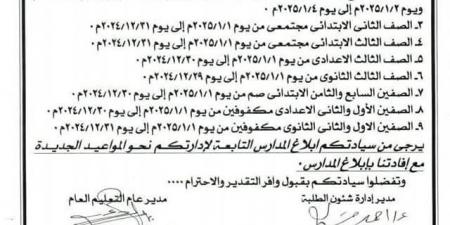 ويوم ٢٠٢٥/١/٢م إلى يوم ٢٠٢٥/١/٤م ٠
٣- الصف الثانى الابتدائى مجتمعى من يوم ٢٠٢٥/١/١م إلى يوم ٢٠٢٤/١٢/٣١م ٠
٤- الصف الثالث الابتدائى مجتمعى من يوم ٢٠٢٥/١/١م إلى يوم ٢٠٢٤/١٢/٣١م ٠
٥- الصف الثالث الاعدادى من يوم ٢٠٢٥/١/١م إلى يوم ٢٠٢٤/١٢/٣٠م ٠
٦- الصف الثالث الثانوى من يوم ٢٠٢٥/١/١م إلى يوم ٢٠٢٤/١٢/٢٩م ٠
٧- الصفين السابع والثامن الابتدائى صم من يوم ٢٠٢٥/١/١م إلى يوم ٢٠٢٤/١٢/٣٠م ٠
٨- الصفين الأول والثانى الاعدادى مكفوفين من يوم ٢٠٢٥/١/١م إلى يوم ٢٠٢٤/١٢/٣٠م ٠
٩- الصفين الاول والثانى الثانوى مكفوفين من يوم ٢٠٢٥/١/١م إلى يوم ٢٠٢٤/١٢/٣١م ٠
يرجى من سيادتكم ابلاغ المدارس التابعة لإدارتكم نحو المواعيد الجديدة
مع إفادتنا بإبلاغ المدارس ٠
وتفضلوا سيادتكم بقبول وافر التقدير والاحترام ٠٠٠٠
مدير إدارة شئون الطلبة
مدير عام التعليم العام